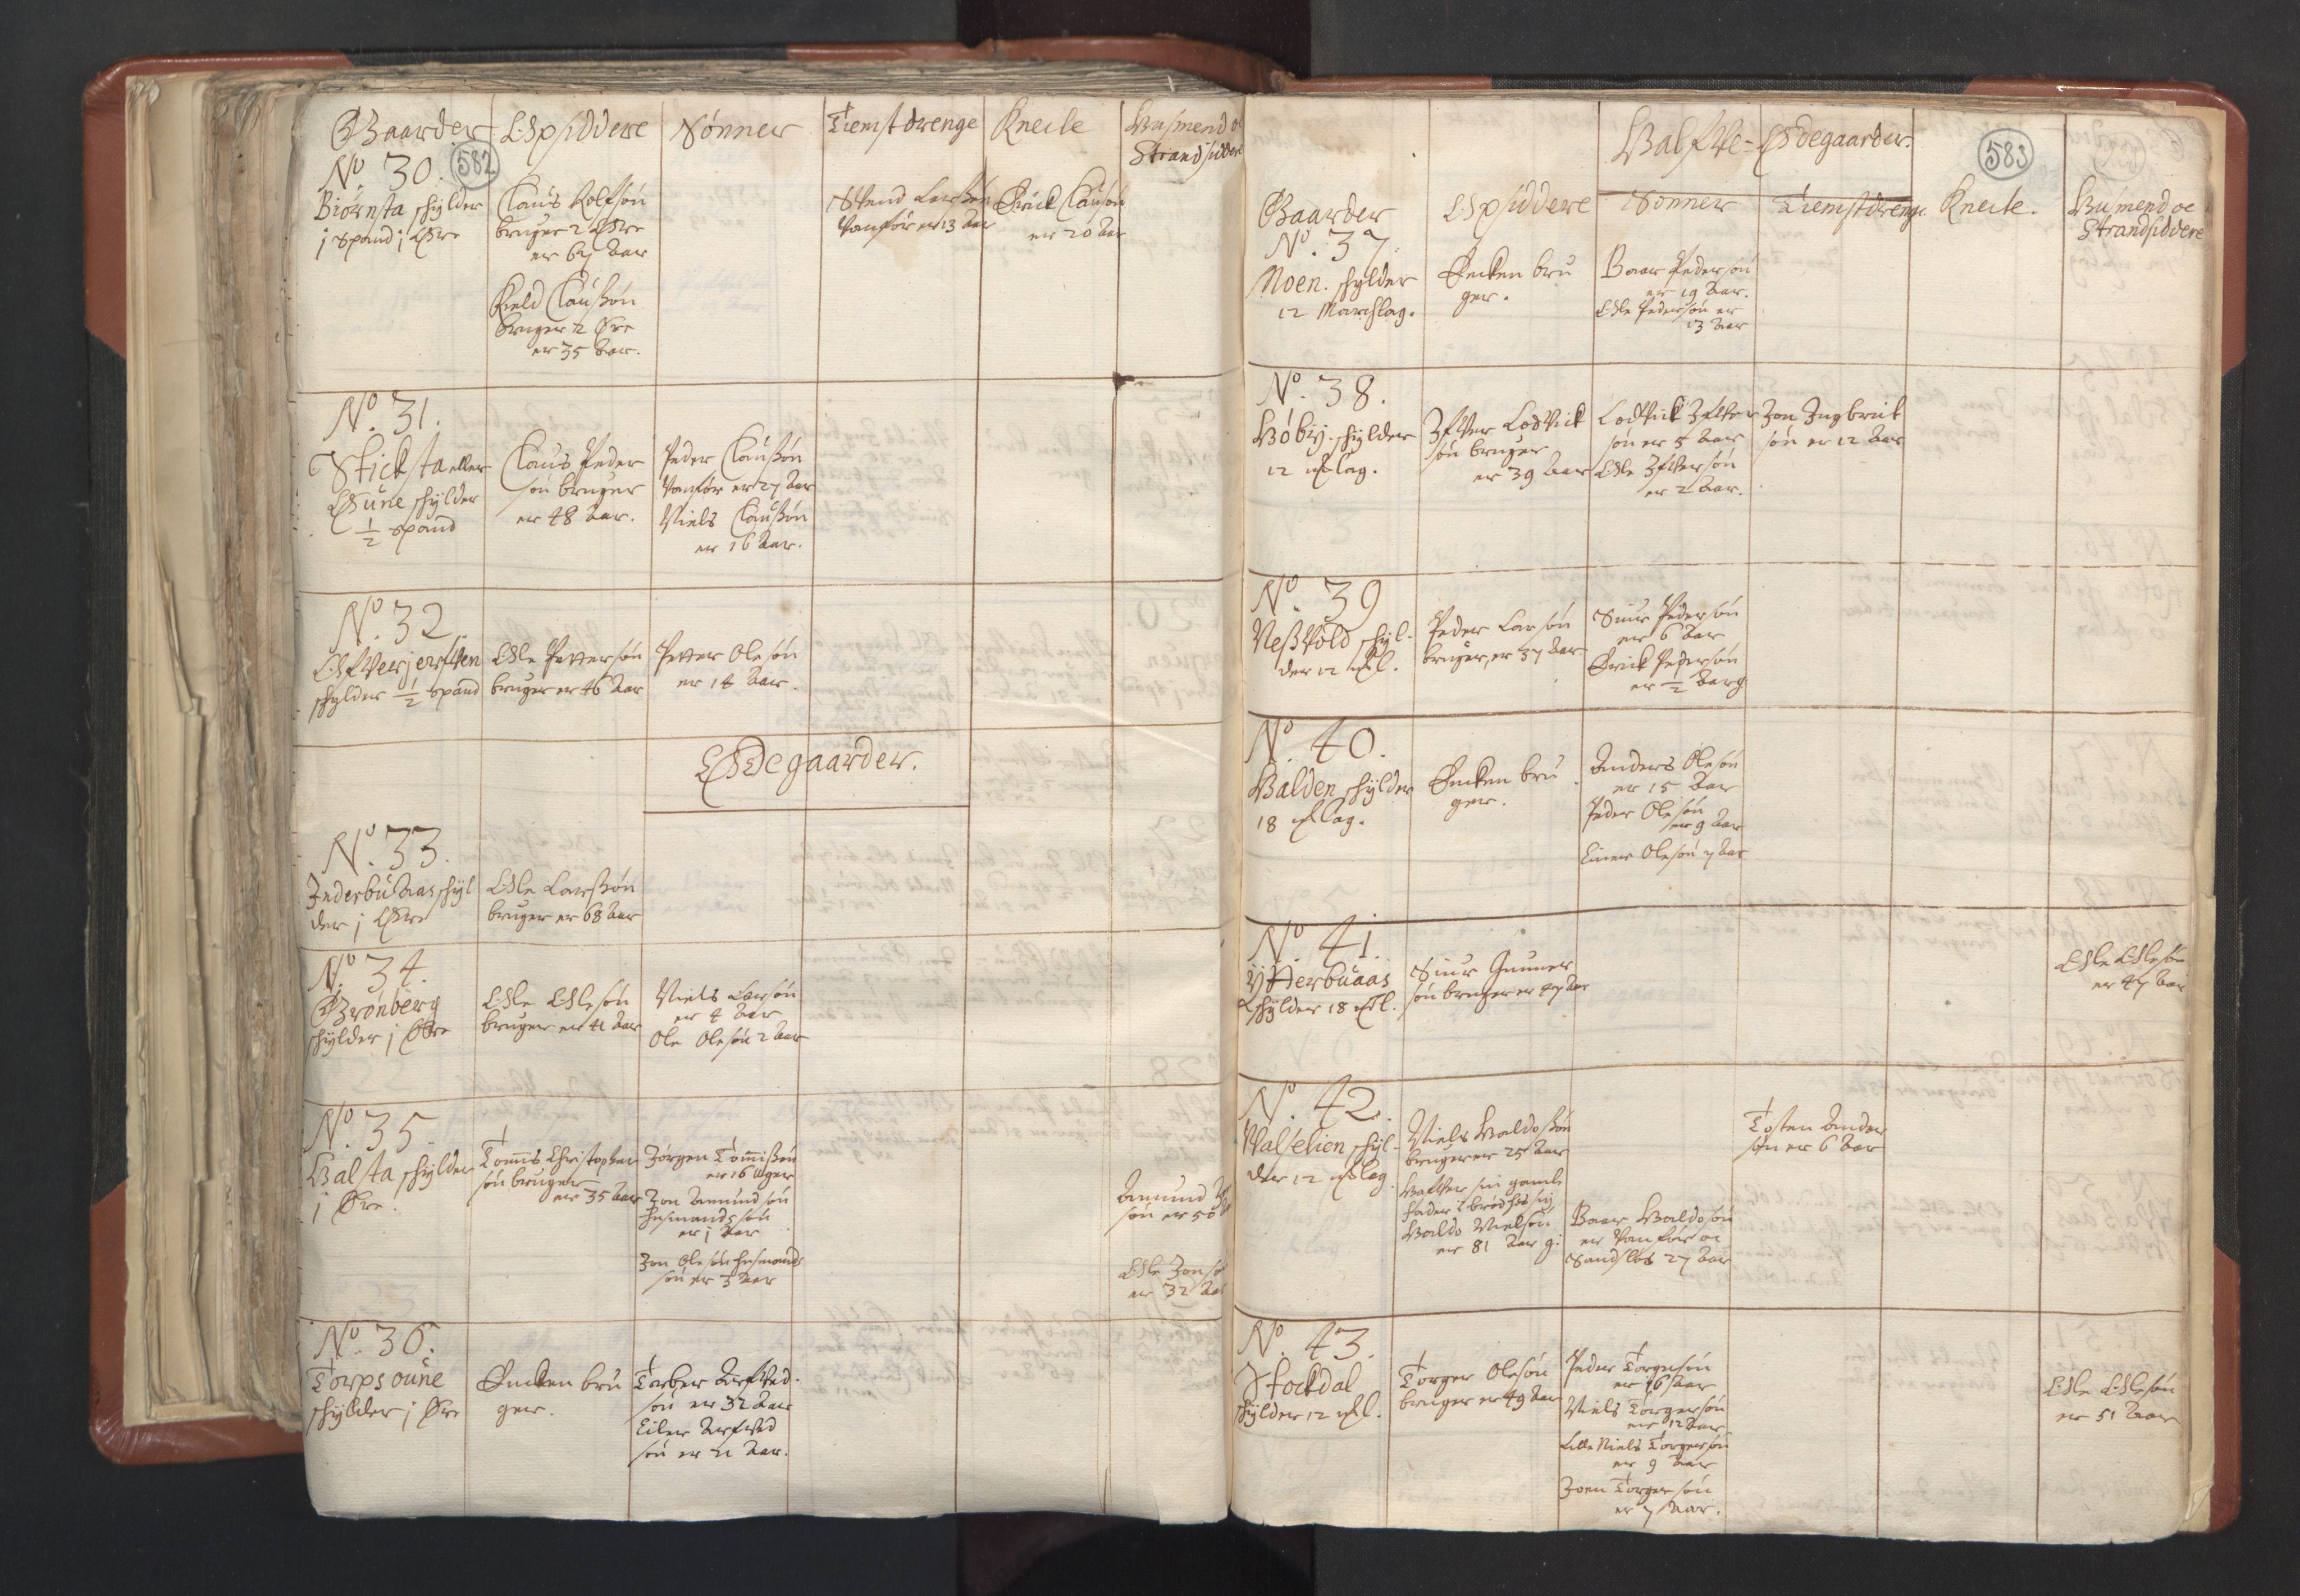 Gaarder Opsiddere Sønner Tienistdrenge Knecte Husmend oc
Strandsiddere
582
No. 30.
Biørnsta schylder
j spand j Øre
Claus Rolfsøn
bruger 2 Øre
er 67 Aar
Kield Claussøn
bruger 2 Øre
er 35 Aar.
Svend Larssøn
Vanfør er 13 Aar
Erick Clausøn
er 20 Aar
No. 31.
Sticksta eller
Oune schylder
1/2 spand
Claus Peder
søn bruger
er 48 Aar.
Peder Claussøn
Vanfør er 27 Aar
Niels Claussøn
er 16 Aar.
No. 32
schylder 1/2 spand
Ole Pettersøn
bruger er 46 Aar
Petter Olesøn
er 14 Aar.
Ødegaarder.
No. 33.
Inderbuaas schyl
der j Øre
Ole Larssøn
bruger er 68 Aar
No. 34.
Grønberg
schylder j Øre
Ole Olesøn
bruger er 41 Aar
Niels Larsøn
er 4 Aar
Ole Olesøn 2 Aar
No. 35.
Halsta schylder
j Øre.
Tomis Christopher
søn bruger
er 35 Aar
Jørgen Tomissøn
er 16 uger
Jon Amundsøn
husmands søn
er j Aar
Jon Olesøn husmands
søn er 3 Aar
Amund
søn er 50
Ole Jonsø
er 32 Aar
No. 36.
Torpsoune
schylder j Øre
Encken bru
ger.
Torber Arfved
søn er 32 Aar
Eiler Arfved
søn er 21 Aar.
583
Halfve-Ødegaarder.
Gaarder Opsiddere Sønner Tienistdrenge Knecte. Husmend oc
Strandsiddere
No. 37.
Moen. schylder
12 Marchlag.
Encken bru
ger.
Baar Pedersøn
er 19 Aar.
Ole Pedersøn er
13 Aar
No. 38.
Høby schylder
12 mklag.
Ifver Lodvick
søn bruger
er 39 Aar
Lodvick Ifver
søn er 5 Aar
Ole Ifversøn
er 2 Aar.
Jon Ingbrict
søn er 12 Aar
No. 39
Nessvold schyl-
der 12 mkl.
Peder Larsøn
bruger, er 37 Aar
Siur Pedersøn
er 6 Aar
Erick Pedersøn
er 1/2 Aarg
No. 40.
Halden schylder
18 mklag.
Encken bru
ger.
Anders Olesøn
er 15 Aar
Peder Olesøn
er 9 Aar
Einer Olesøn 7 Aar
No. 41.
Ytterbuaas
schylder 18 mkl.
Siur Gunner
søn bruger er 47 Aar
Ole Olesøn
er 47 Aar
No. 42.
Valselien schyl-
der 12 mklag
Niels Haldossøn
bruger er 25 Aar
Hafver sin gamle
fader i brød hos sig
Haldo Nielsøn
er 81 Aar g:
Baar Haldosøn
er Vanfør oc
Sandsløs 27 Aar
Tosten Ander
søn er 6 Aar
No. 43.
Stockdal
schylder 12 mkl.
Torger Olesøn
bruger er 49 Aar
Peder Torgersøn
er 16 Aar
Niels Torgersøn
er 12 Aar
Lille Niels Torgersøn
er 9 Aar
Joen Torgersøn
er 7 Aar.
Ole Olesøn
er 51 Aar